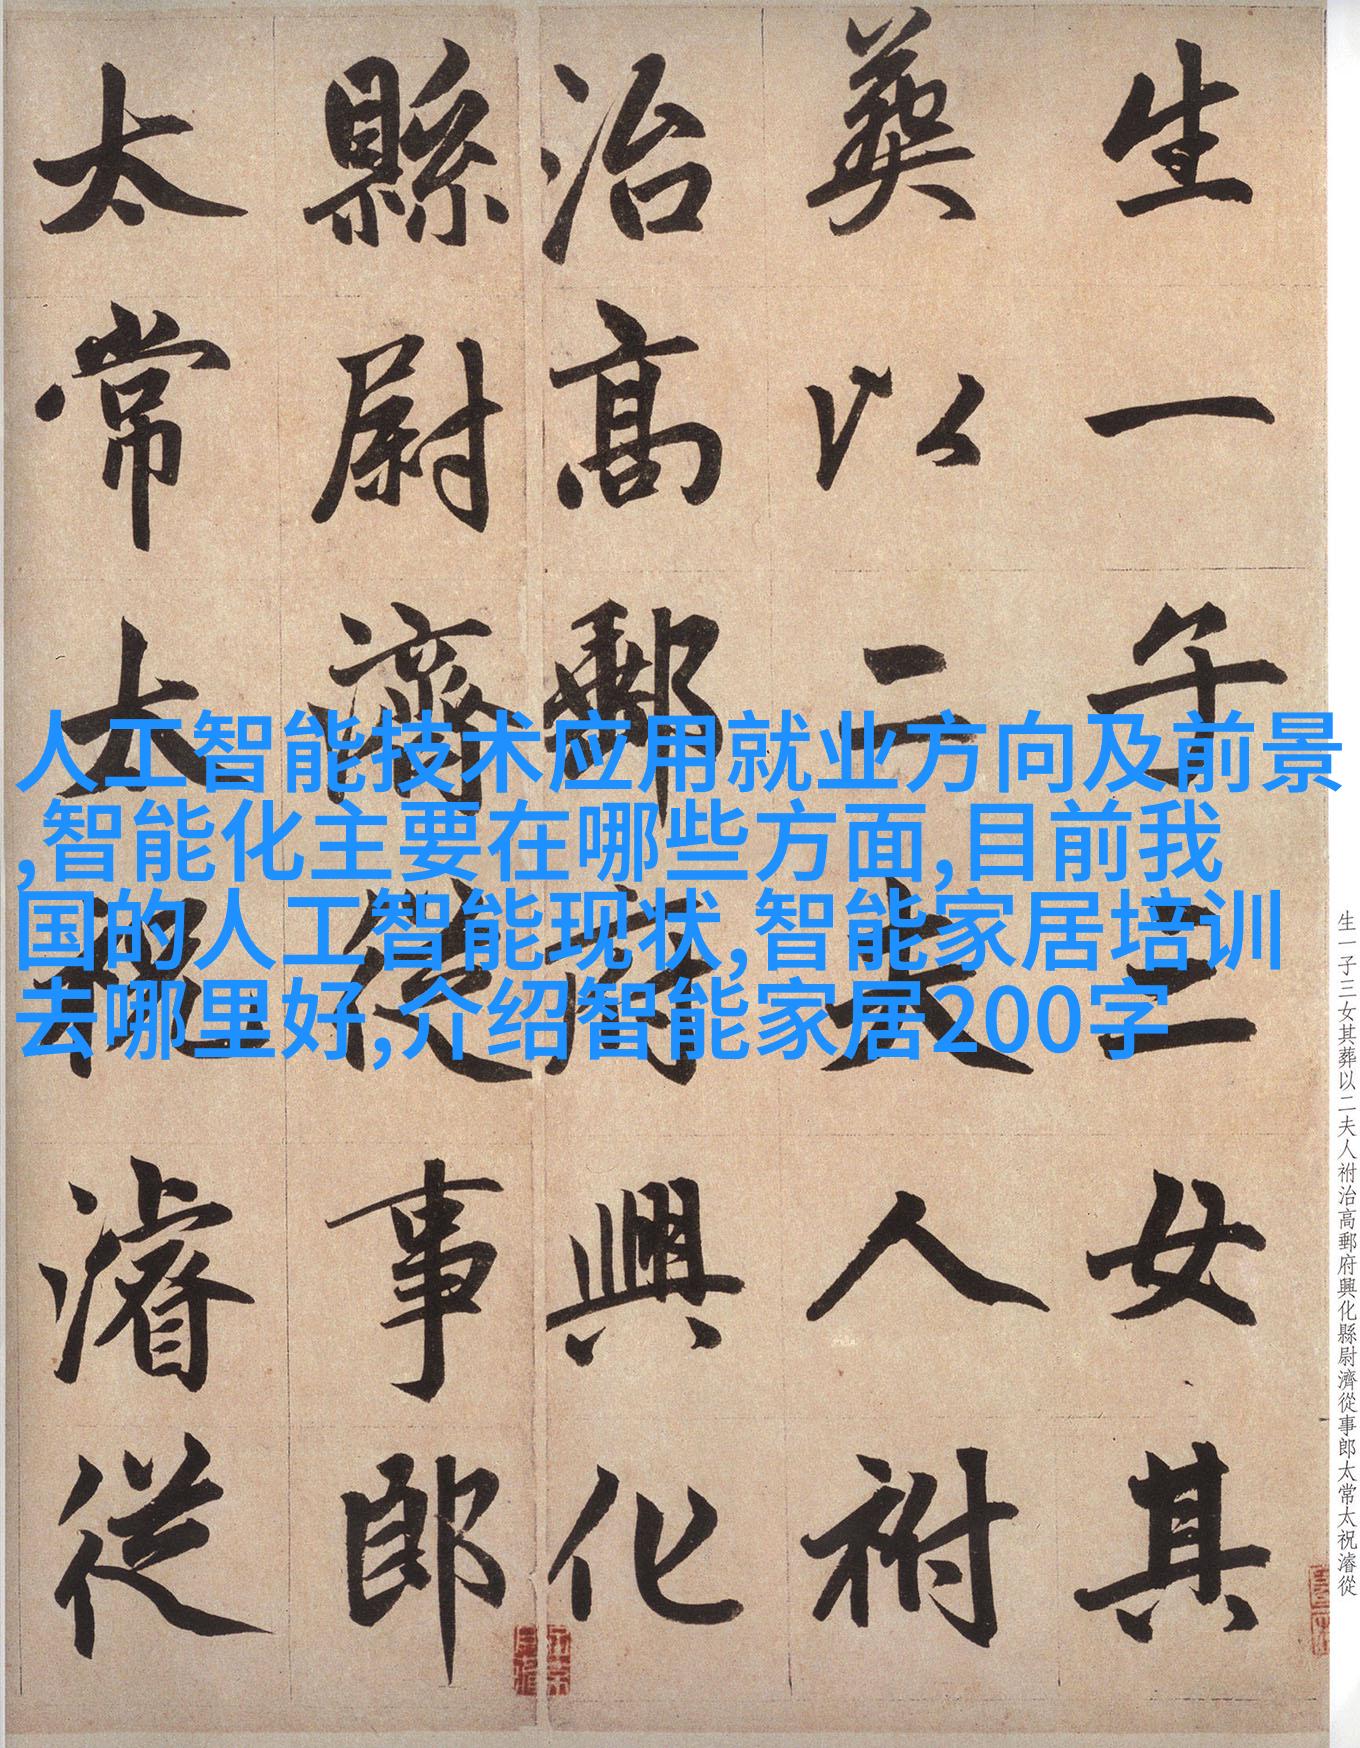 生一子三女其
葬以二夫人祔
治高郵府興化
縣尉濟從事郎
太常太祝濬從
人工智能技术应用就业方向及前景
,智能化主要在哪些方面,目前我
国的人工智能现状,智能家居培训
去哪里好,介绍智能家居200字
生一子三女其葬以二夫人祔治高郵府興化縣尉濟從事郎太常太祝濬從